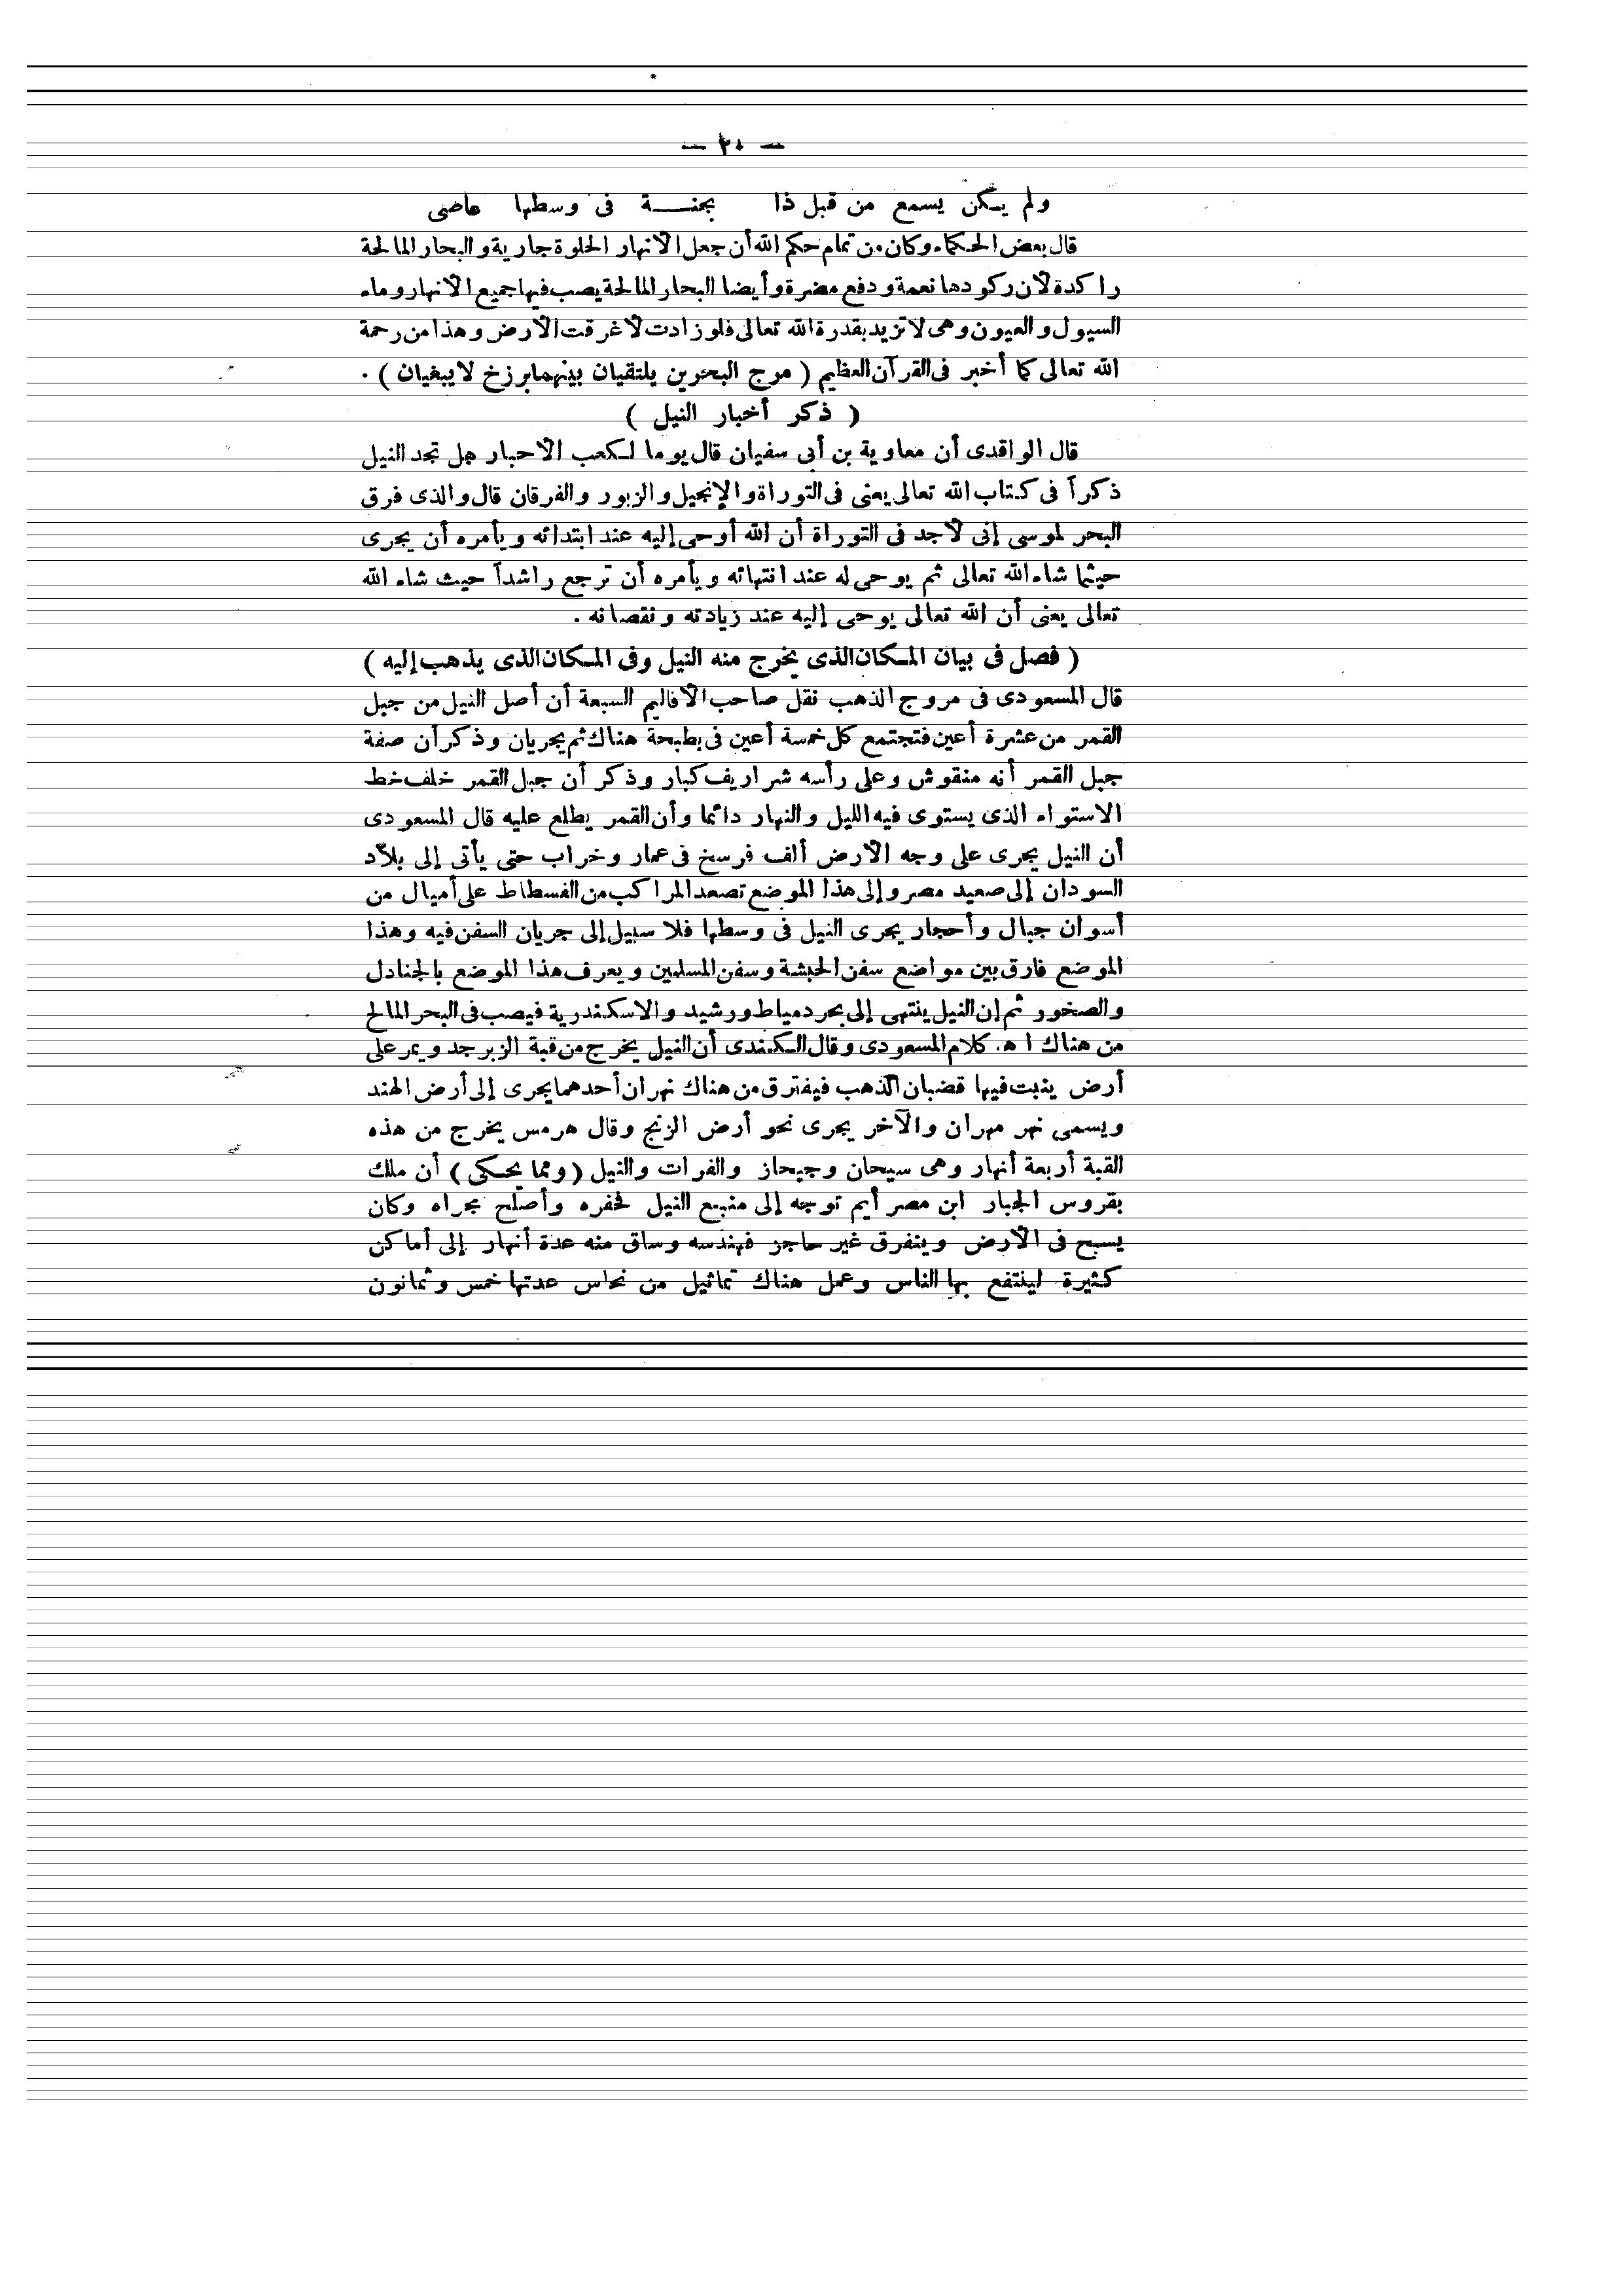 — ٢٠ —
ولم يكن يسمع من قبل ذا بجنة فى وسطها عاصى
قال بعض الحكماء وكان من تمام حكم الله أن جعل الانهار الحلوة جارية والبحار المالحة
راكدة لان ركودها نعمة ودفع مضرة وأيضا البحار المالحة يصب فيها جميع الانهار وماء
السيول والعيون وهى لا تزيد بقدرة الله تعالى فلو زادت لاغرقت الارض وهذا من رحمة
الله تعالى كما أخبر فى القرآن العظيم ( مرج البحرين يلتقيان بينهما برزخ لا يبغيان ) .
( ذكر أخبار النيل )
قال الواقدى أن معاوية بن أبى سفيان قال يوما لكعب الاحبار هل تجد النيل
ذكراً فى كتاب الله تعالى يعنى فى التوراة والإنجيل والزبور والفرقان قال والذى فرق
البحر لموسى إنى لاجد فى التوراة أن الله أوحى إليه عند ابتدائه ويأمره أن يجرى
حيثما شاء الله تعالى ثم يوحى له عند انتهائه ويأمره أن ترجع راشداً حيث شاء الله
تعالى يعنى أن الله تعالى يوحى إليه عند زيادته ونقصانه .
( فصل فى بيان المكان الذى يخرج منه النيل وفى المكان الذى يذهب إليه )
قال المسعودى فى مروج الذهب نقل صاحب الاقاليم السبعة أن أصل النيل من جبل
القمر من عشرة أعين فتجتمع كل خمسة أعين فى بطيحة هناك ثم يجريان وذكر أن صفة
جبل القمر أنه منقوش وعلى رأسه شراريف كبار وذكر أن جبل القمر خلف خط
الاستواء الذى يستوى فيه الليل والنهار دائما وأن القمر يطلع عليه قال المسعودى
أن النيل يجرى على وجه الارض ألف فرسخ فى عمار وخراب حتى يأتى إلى بلاد
السودان إلى صعيد مصر وإلى هذا الموضع تصعد المراكب من الفسطاط على أميال من
أسوان جبال وأحجار يجرى النيل فى وسطها فلا سبيل إلى جريان السفن فيه وهذا
الموضع فارق بين مواضع سفن الحبشة وسفن المسلمين ويعرف هذا الموضع بالجنادل
والصخور ثم إن النيل ينتهى إلى بحر دمياط ورشيد والاسكندرية فيصب فى البحر المالح
من هناك ا ه. كلام المسعودى وقال الكندى أن النيل يخرج من قبة الزبرجد ويمر على
أرض ينبت فيها قضبان الذهب فيفترق من هناك نهران أحدهما يجرى إلى أرض الهند
ويسمى نهر مهران والآخر يجرى نحو أرض الزنج وقال هرمس يخرج من هذه
القبة أربعة أنهار وهى سيحان وجيحاز والفرات والنيل ( ومما يحكى ) أن ملك
بقروس الجبار ابن مصر أيم توجه إلى منبع النيل فحفره وأصلح مجراه وكان
يسبح فى الارض وينفرق غير حاجز فهندسه وساق منه عدة أنهار إلى أماكن
كثيرة لينتفع بها الناس وعمل هناك تماثيل من نحاس عدتها خمس وثمانون